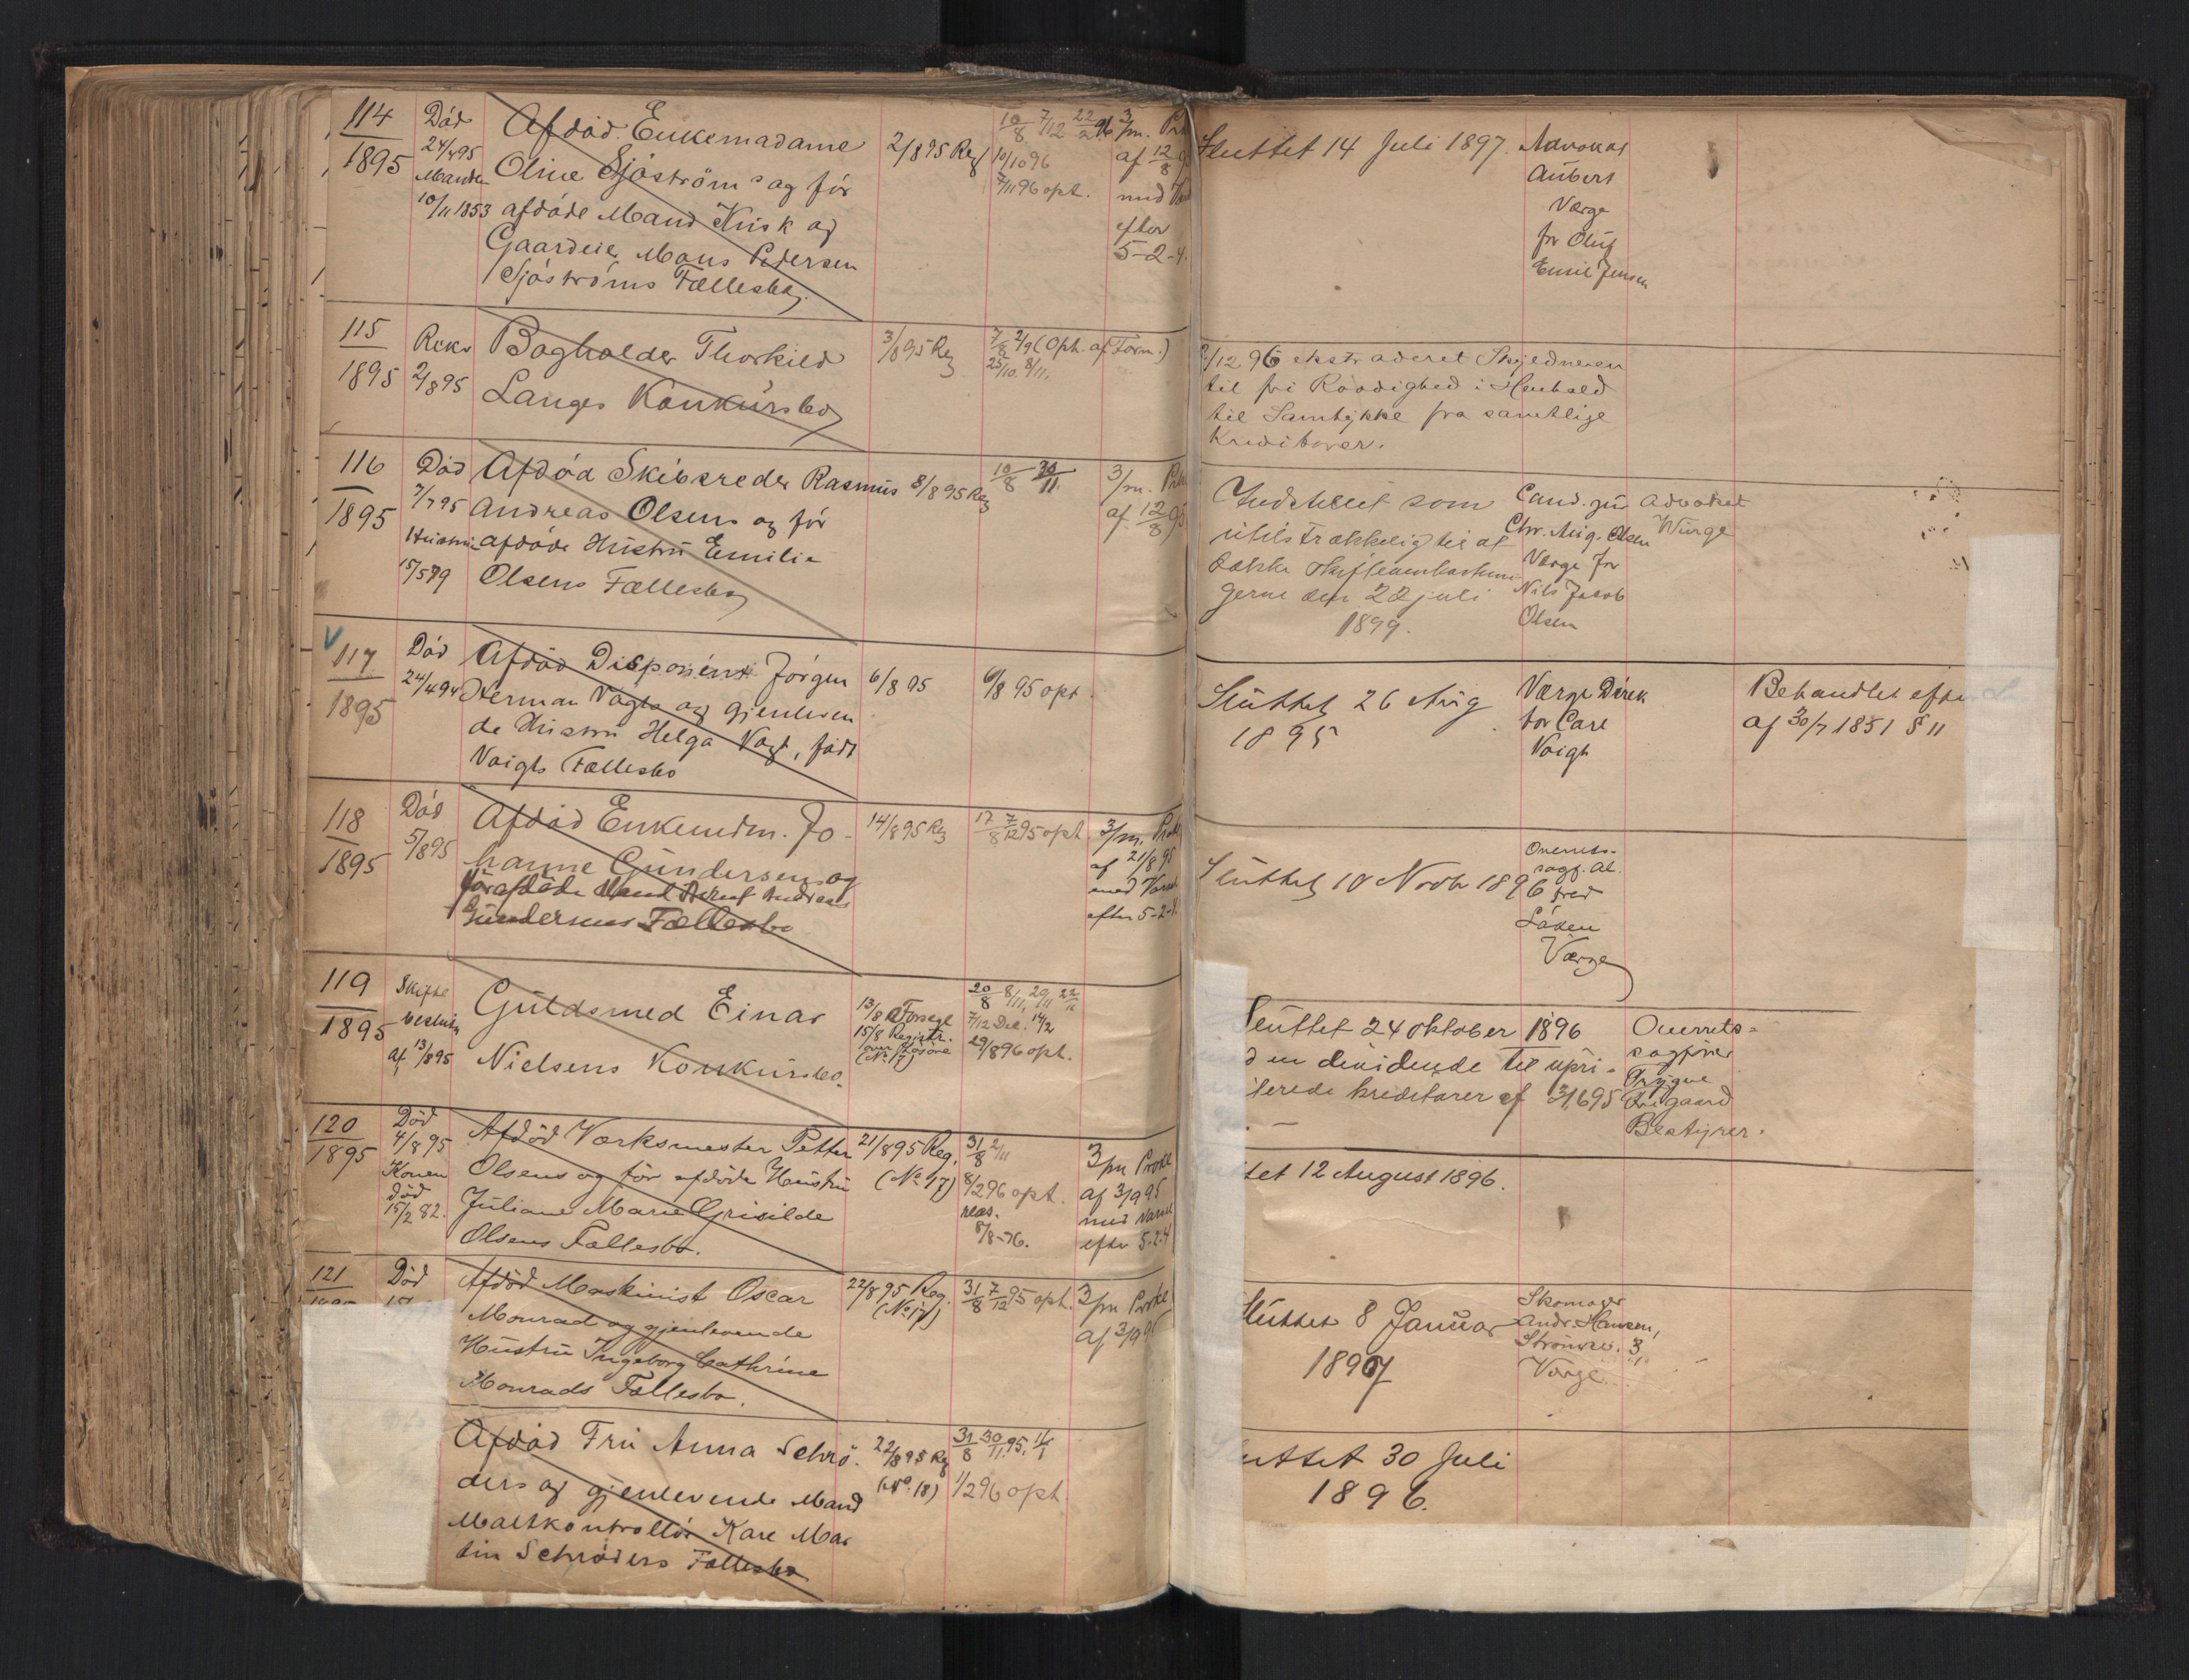 114
1895
Död
24/4 95
Manden
10/11 1853
Afdöd Enkemadame
Oline Sjöströms og för
afdöde Mand Kusk og
Gaardeier Mons Pedersen
Sjöströms Fællesbo.
2/8 95 Reg
10/8 7/12 22/2 96
10/10 96
7/11 96 opt.
3/m. Pr
af 12/8 95
med Var
efter
5-2-4.
Sluttet 14 Juli 1897.
Advokat
Aubert
Værge
for Oluf
Emil Jensen
115
1895
Rekv
2/8 95
Bogholder Thorkild
Langes Konkursbo
3/8 95 Reg
7/8 2/9 (Oph. af Form.)
25/10. 8/11.
/12 96 ekstraderet Skyldneren
til fri Raadighed i Henhold
til Samtykke fra samtlige
Kreditorer.
116
1895
Död
7/7 95
Hustru
15/5 79
Afdöd Skibsreder Rasmus
Andreas Olsens og för
afdöde Hustru Emilie
Olsens Fællesbo
8/8 95 Reg
10/8 30/11.
3/m. Pr
af 12/8 95
Indstillet som
utilstrækkelig til at
dække
gerne den 22 juli
1899.
Cand. jur
Chr. Aug. Olsen
Værge for
Nils Jacob
Olsen
Advokat
117
1895
Död
24/4 94
Afdöd Disponent Jörgen
Herman Vogts og gjenleven
de Hustru Helga Vogt, född
Voigts Fællesbo
6/8 95
6/8 95 opt.
Sluttet 26 Aug
1895
Værge Direk
tör Carl
Voigt
Behandlet efter
af 30/7 1851 § 11
118
1895
Död
5/8 95
Afdöd Enkemdm. Jo-
hanne Gundersens og
för afdöde Mand Bernt Andreas
Gundersens Fællesbo
14/8 95 Reg
17/8 7/12 95 opt
3/m. Prokl
af 21/8 95
med Varsel
efter 5-2-4.
Sluttet 10 Novbr 1896
Overrets-
sagf. Al
fred
Löken
Værge
119
1895
Skifte
beslutn
af 13/8 95
Guldsmed Einar
Nielsens Konkursbo.
13/8 Forsegl
15/8 Registr.
over Lösöre
(No 17)
20/8 8/11, 29/11 22/11
7/12 Del. 14/2
29/8 96 opt.
Sluttet 24 oktober 1896
d en dividende til upri-
terede kreditorer af 31,695
Overrets-
sagförer
Trygve
Bestyrer.
120
1895
Död
4/8 95
Konen
död
15/2 82.
Afdöd Værksmester Petter
Olsens og för afdöde Hustru
Juliane Marie Grisilde
Olsens Fællesbo.
21/8 95 Reg.
(No 17)
31/8 2/11
8/2 96 opt.
reas.
8/8-96.
3/m Prokl
af 3/9 95
med Varsel
efter 5-2-4
tet 12 August 1896.
121
Död
Afdöd Maskinist Oscar
Monrad og gjenlevende
Hustru Ingeborg Cathrine
Monrads Fællesbo.
22/8 95 Reg.
(No 17)
31/8 7/12 95 opt.
3/m Prokl
af 3/9 95
Sluttet 8 Januar
1897
Skomager
Andr. Hansen,
Strömsv. 3
Værge.
Afdöd Fru Anna Schrö-
ders og gjenlevende Mand
Maltkontrollör Karl Mar
tin Schröders Fællesbo.
22/8 95 Reg
(No 18)
31/8 30/11 95, 11/1
1/2 96 opt.
uttet 30 Juli
1896.